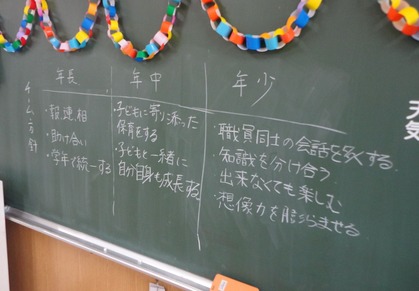 年長
年中
年少
チーム方針
・報連相
・助け合い
・学年で統一する
・子どもに寄り添った
保育をする
・子どもと一緒に
自分自身も成長する
・職員同士の会話を多くする。
・知識を分け合う
・出来なくても楽しむ
・想像力を膨らませる